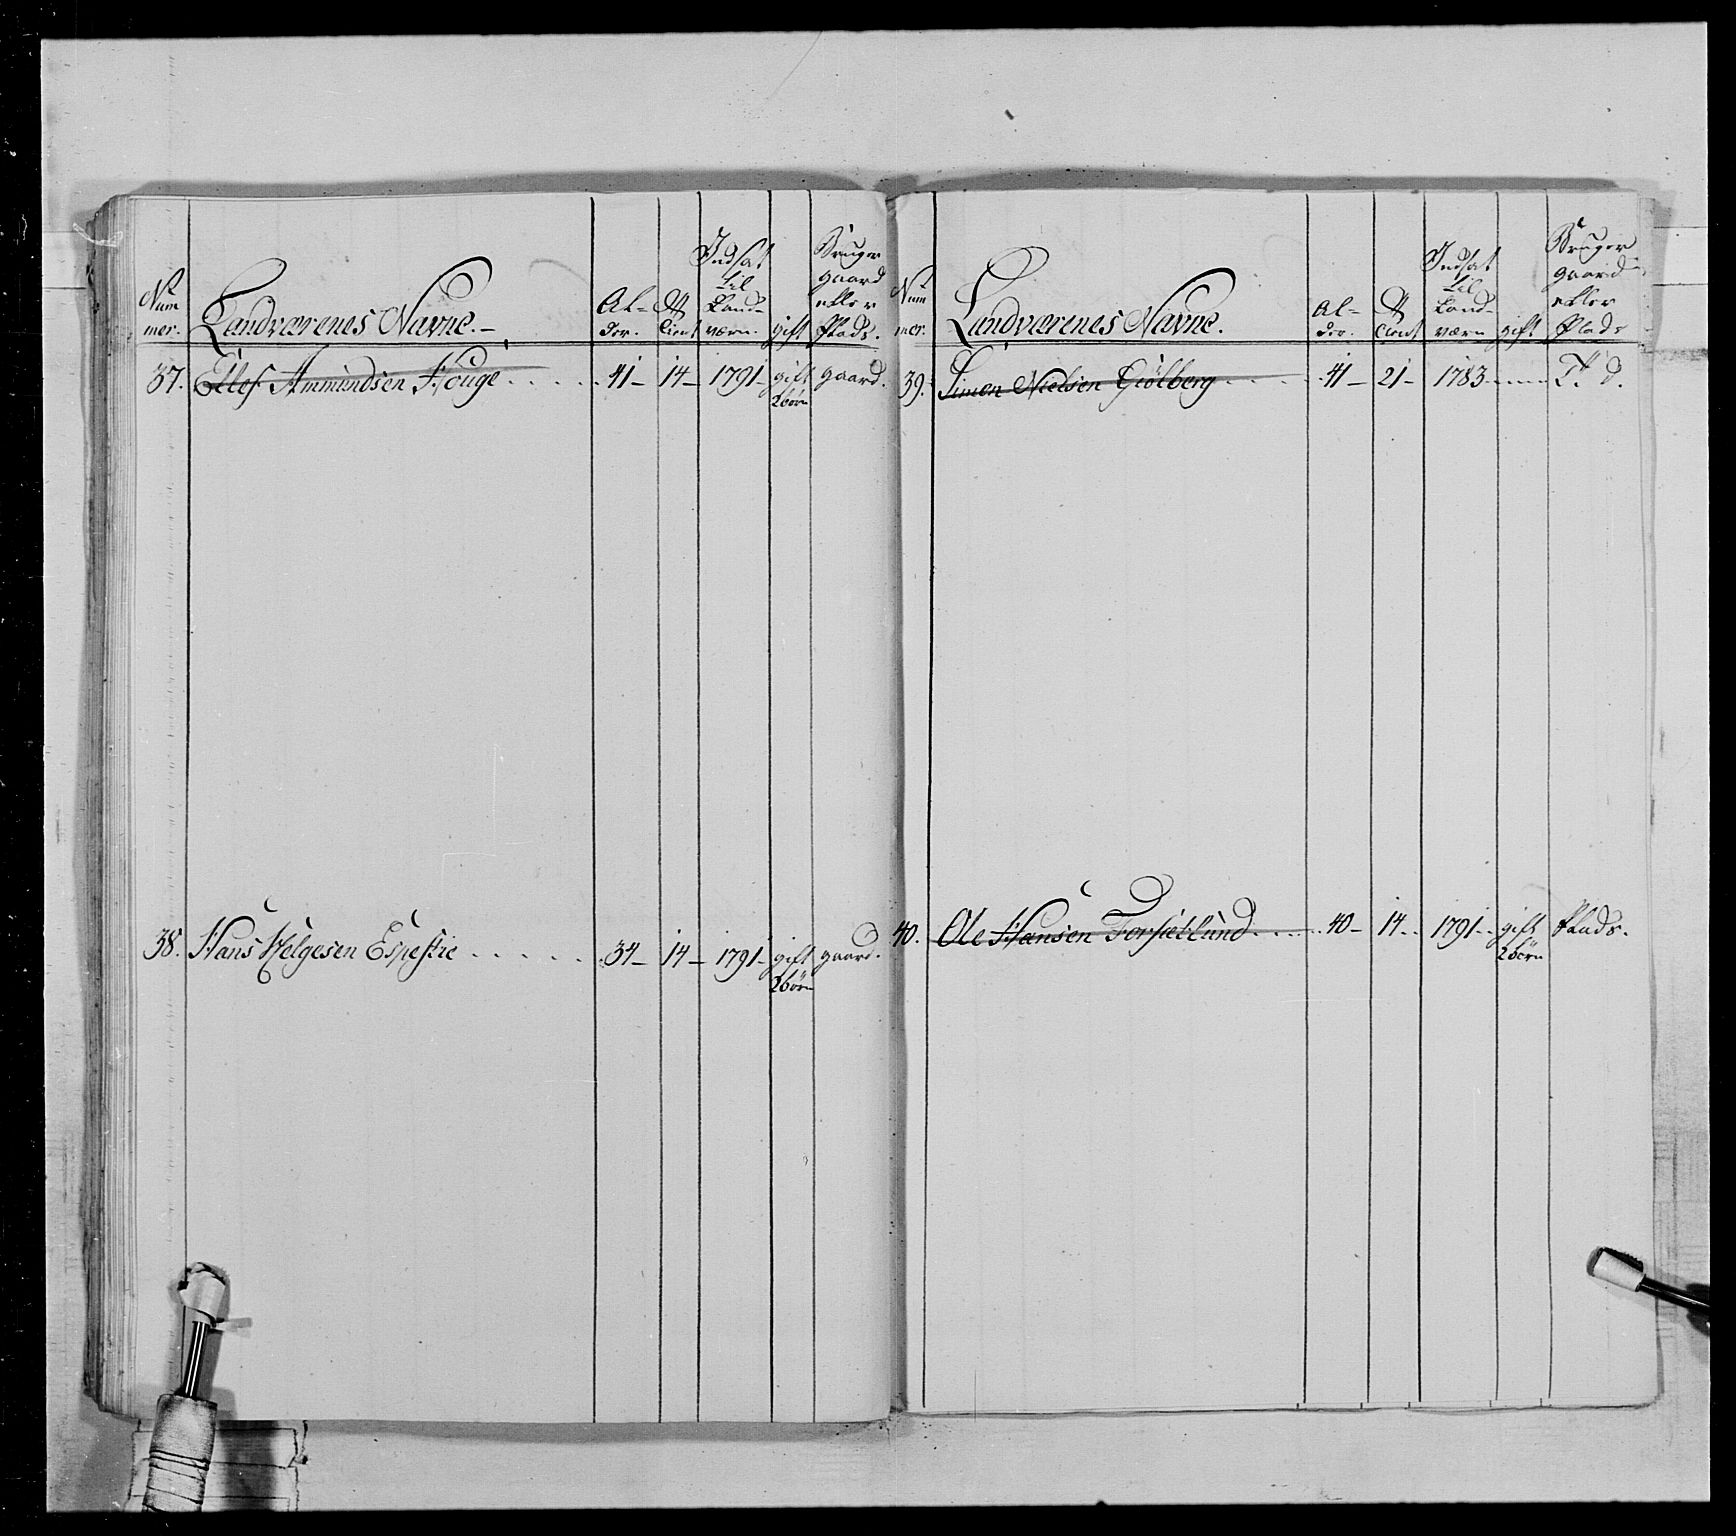 Num
mer.
Landværenes Navne.
Al-
der.
Indsat
til
Land-
værn.
gift
Bruger
gaard
eller
Plads.
37. Ellef Ammundsen Houge . . . . . 41 – 14 – 1791 – gift gaard.
2 børn
38. Hans Helgesen Espeslie . . . . . 34 – 14 – 1791 – gift gaard.
2 børn
Num
mer.
Landværenes Navne.
Al-
der.
Indsat
til
Land-
værn
gift
Bruger
gaard
eller
Plads
39. Simen Nielsen Giölberg . . . . 41 – 21 – 1783
40. Ole Hansen Forsætlund . . . . 40 – 14 . . 1791 . . gift Plads.
2 børn